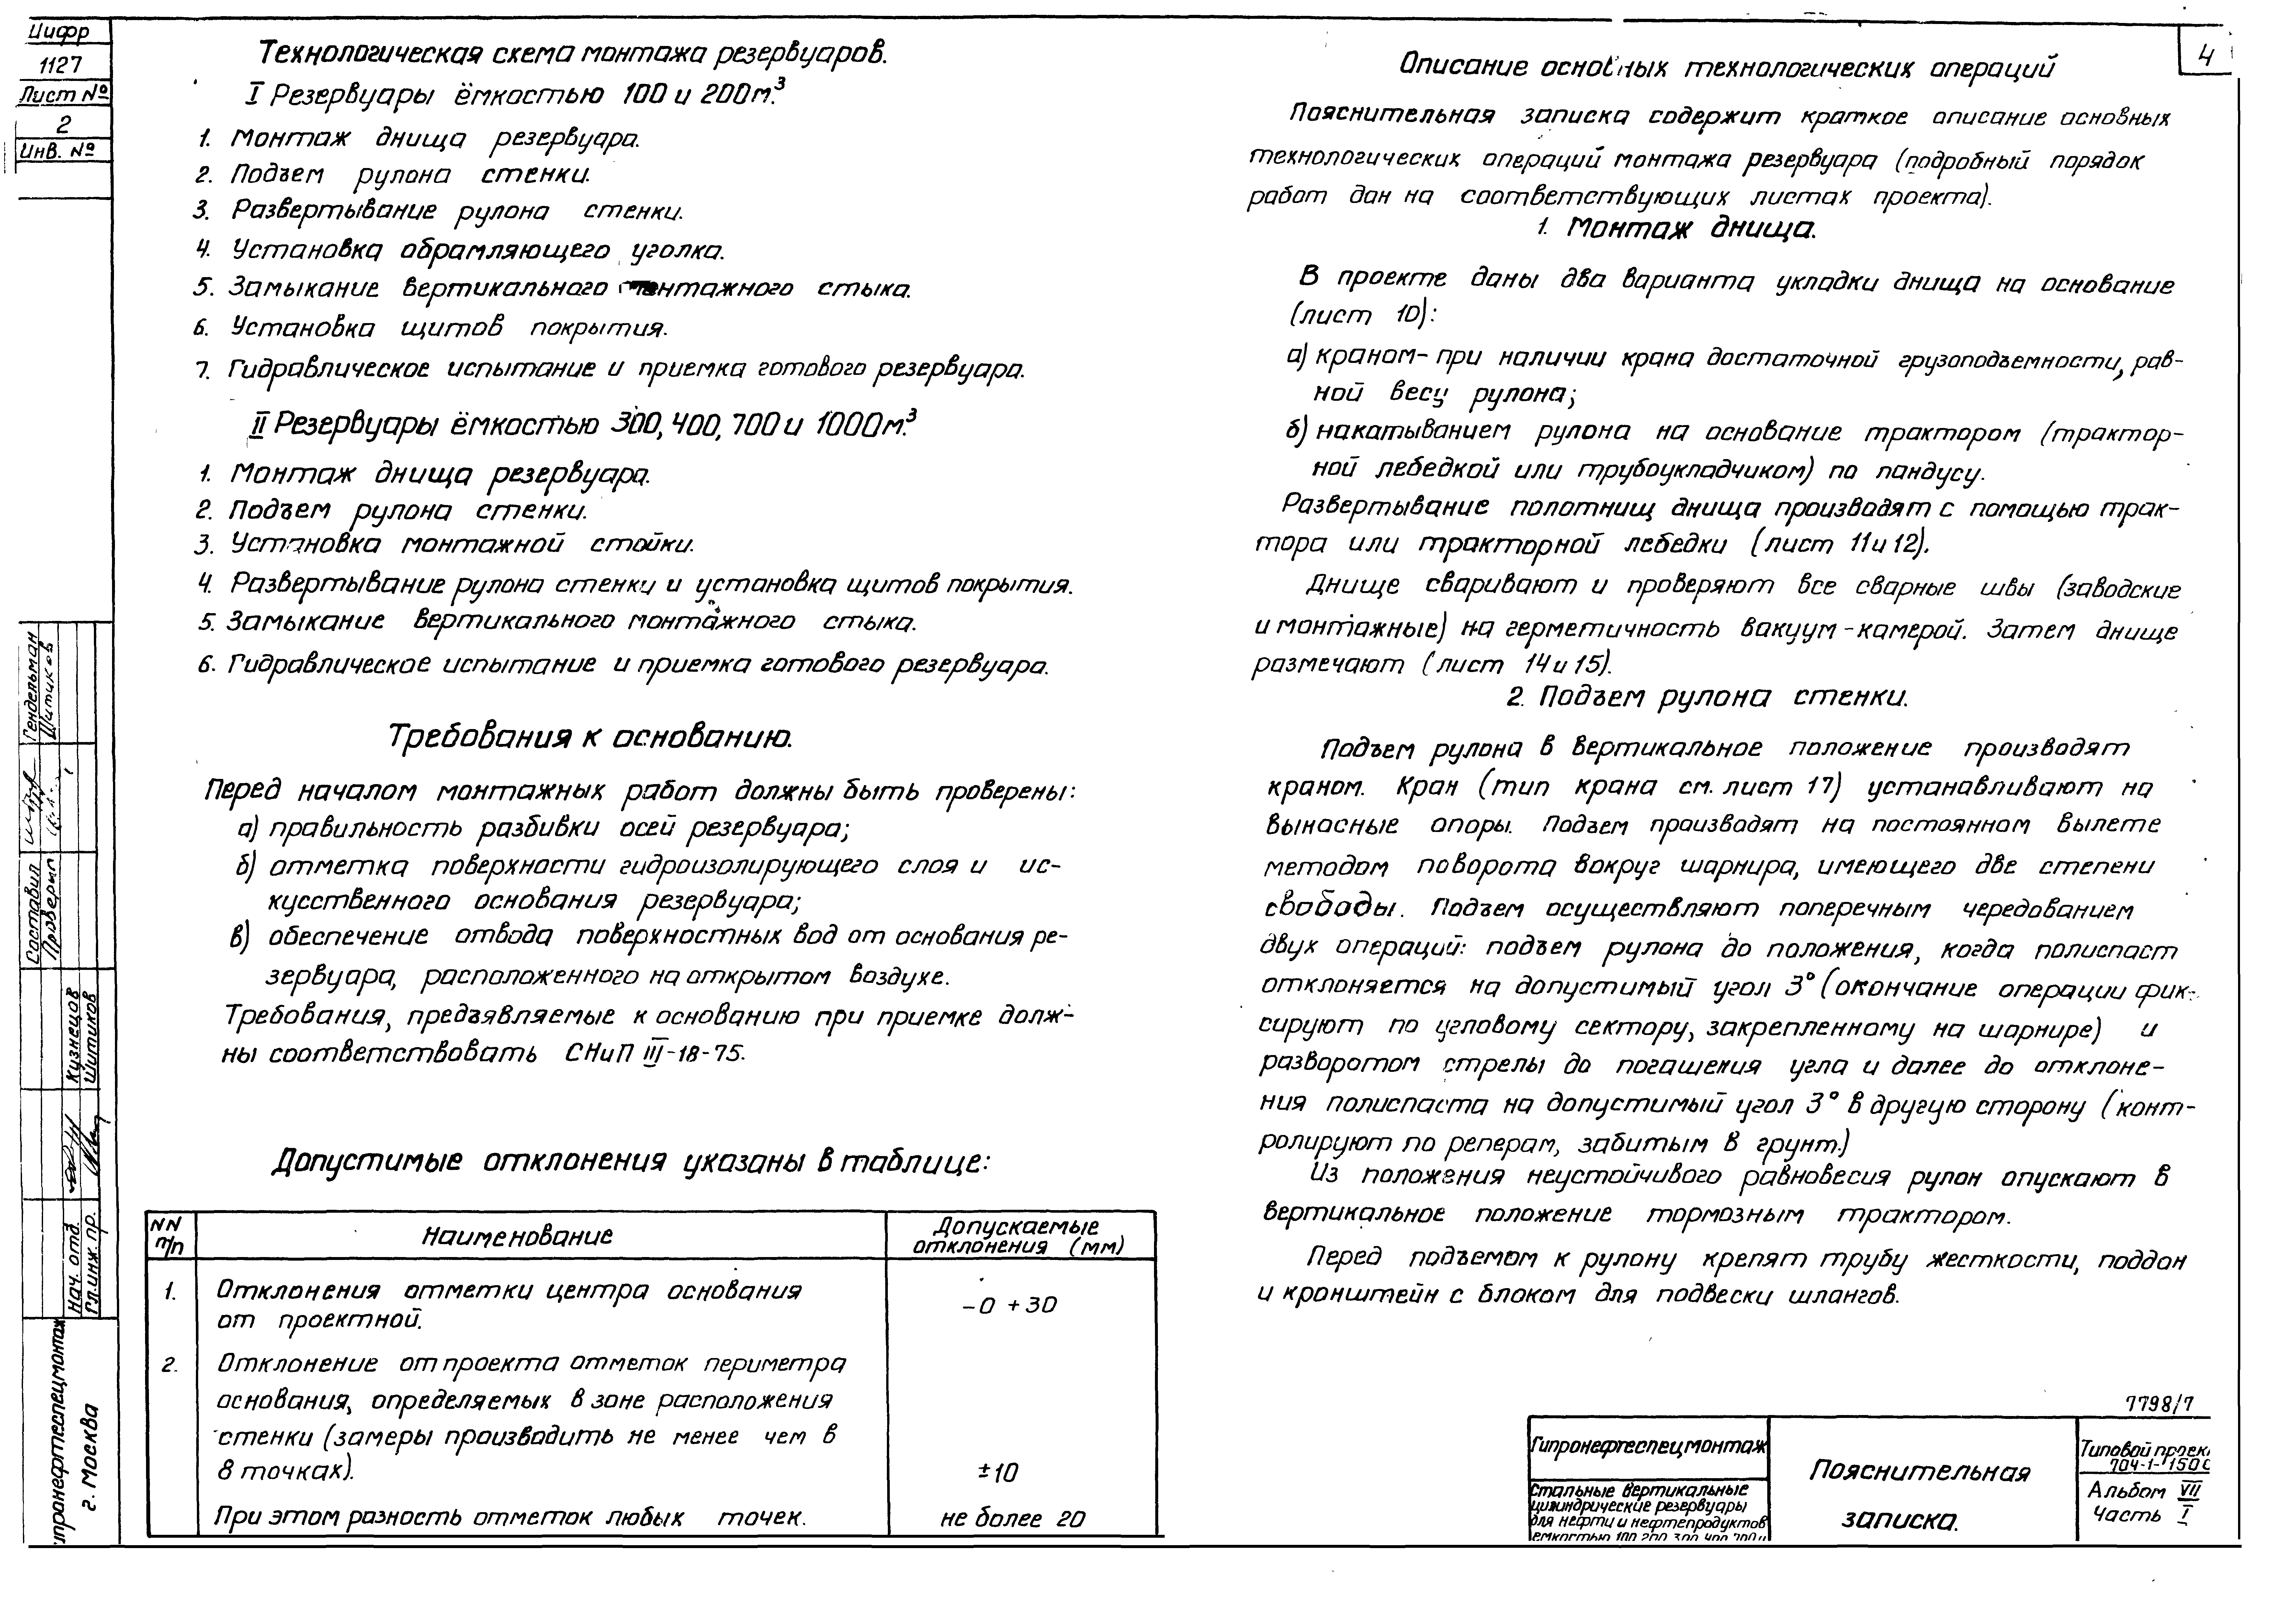 Шифр
1127
Лист №
2
Инв. №
Технологическая схема монтажа резервуаров.
I Резервуары ёмкостью 100 и 200 м.³
1. Монтаж днища резервуара.
2. Подъем рулона стенки.
3. Развертывание рулона стенки.
4. Установка обрамляющего уголка.
5. Замыкание вертикального монтажного стыка.
6. Установка щитов покрытия.
7. Гидравлическое испытание и приемка готового резервуара.
II Резервуары ёмкостью 300, 400, 700 и 1000 м.³
1. Монтаж днища резервуара.
2. Подъем рулона стенки.
3. Установка монтажной стойки.
4. Развертывание рулона стенки и установка щитов покрытия.
5. Замыкание вертикального монтажного стыка.
6. Гидравлическое испытание и приемка готового резервуара.
Требования к основанию.
Перед началом монтажных работ должны быть проверены:
а) правильность разбивки осей резервуара;
б) отметка поверхности гидроизолирующего слоя и ис-
кусственного основания резервуара;
в) обеспечение отвода поверхностных вод от основания ре-
зервуара, расположенного на открытом воздухе.
Требования, предъявляемые к основанию при приемке долж-
ны соответствовать СНиП III-18-75.
Допустимые отклонения указаны в таблице:
NN п/п
Наименование
Допускаемые отклонения (мм)
1. Отклонения отметки центра основания
от проектной.
-0 +30
2. Отклонение от проекта отметок периметра
основания, определяемых в зоне расположения
стенки (замеры производить не менее чем в
8 точках). ±10
При этом разность отметок любых точек. не более 20
4
Описание основных технологических операций
Пояснительная записка содержит краткое описание основных
технологических операций монтажа резервуара (подробный порядок
работ дан на соответствующих листах проекта).
1. Монтаж днища.
В проекте даны два варианта укладки днища на основание
(лист 10):
а) краном - при наличии крана достаточной грузоподъемности, рав-
ной весу рулона;
б) накатыванием рулона на основание трактором (трактор-
ной лебедкой или трубоукладчиком) по пандусу.
Развертывание полотнищ днища производят с помощью трак-
тора или тракторной лебедки (лист 11 и 12).
Днище сваривают и проверяют все сварные швы (заводские
и монтажные) на герметичность вакуум-камерой. Затем днище
размечают (лист 14 и 15).
2. Подъем рулона стенки.
Подъем рулона в вертикальное положение производят
краном. Кран (тип крана см. лист 17) устанавливают на
выносные опоры. Подъем производят на постоянном вылете
методом поворота вокруг шарнира, имеющего две степени
свободы. Подъем осуществляют поперечным чередованием
двух операций: подъем рулона до положения, когда полиспаст
отклоняется на допустимый угол 3° (окончание операции фик-
сируют по угловому сектору, закрепленному на шарнире) и
разворотом стрелы до погашения угла и далее до отклоне-
ния полиспаста на допустимый угол 3° в другую сторону (конт-
ролируют по реперам, забитым в грунт.)
Из положения неустойчивого равновесия рулон опускают в
вертикальное положение тормозным трактором.
Перед подъемом к рулону крепят трубу жесткости, поддон
и кронштейн с блоком для подвески шлангов.
Гендельман
Шитиков
Составил
Проверил
Кузнецов
Шитиков
Нач. отд.
Гл. инж. пр.
ипронефтеспецмонтаж
г. Москва
7798/7
Гипронефтеспецмонтаж
Стальные вертикальные
цилиндрические резервуары
для нефти и нефтепродуктов
емкостью 100, 200, 300, 400, 700 и
Пояснительная
записка.
Типовой проек
704-1-150С
Альбом VII
Часть I